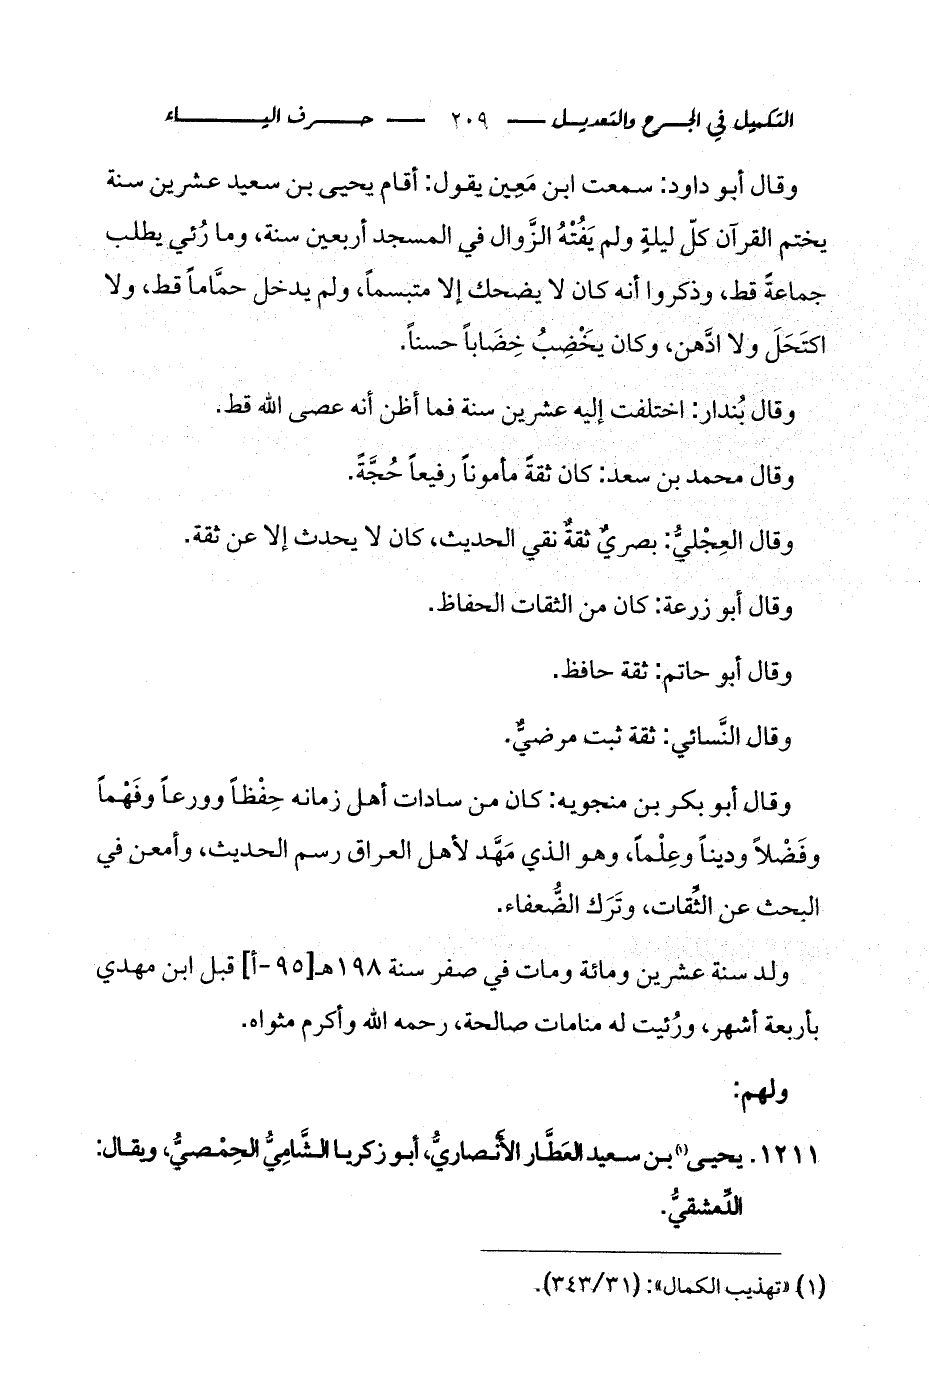 التكميل في الجرح والتعديل — ٢٠٩ — حرف الياء
وقال أبو داود: سمعت ابن مَعِين يقول: أقام يحيى بن سعيد عشرين سنة
يختم القرآن كلّ ليلةٍ ولم يَفُتْهُ الزَّوال في المسجد أربعين سنة، وما رُئي يطلب
جماعةً قط، وذكروا أنه كان لا يضحك إلا متبسماً، ولم يدخل حمَّاماً قط، ولا
اكتَحَلَ ولا ادَّهن، وكان يخْضِبُ خِضَاباً حسناً.
وقال بُندار: اختلفت إليه عشرين سنة فما أظن أنه عصى الله قط.
وقال محمد بن سعد: كان ثقةً مأموناً رفيعاً حُجَّةً.
وقال العِجْليُّ: بصريٌ ثقةٌ نقي الحديث، كان لا يحدث إلا عن ثقة.
وقال أبو زرعة: كان من الثقات الحفاظ.
وقال أبو حاتم: ثقة حافظ.
وقال النَّسائي: ثقة ثبت مرضيٌّ.
وقال أبو بكر بن منجويه: كان من سادات أهل زمانه حِفْظاً وورعاً وفَهْماً
وفَضْلاً وديناً وعِلْماً، وهو الذي مَهَّد لأهل العراق رسم الحديث، وأمعن في
البحث عن الثِّقات، وتَرَك الضُّعفاء.
ولد سنة عشرين ومائة ومات في صفر سنة ١٩٨هـ[٩٥-أ] قبل ابن مهدي
بأربعة أشهر، ورُئيت له منامات صالحة، رحمه الله وأكرم مثواه.
ولهم:
١٢١١. يحيى(١) بن سعيد العَطَّار الأنْصاريُّ، أبو زكريا الشَّامِيُّ الحِمْصيُّ، ويقال:
الدِّمشقيُّ.
(١) «تهذيب الكمال»: (٣٤٣/٣١).